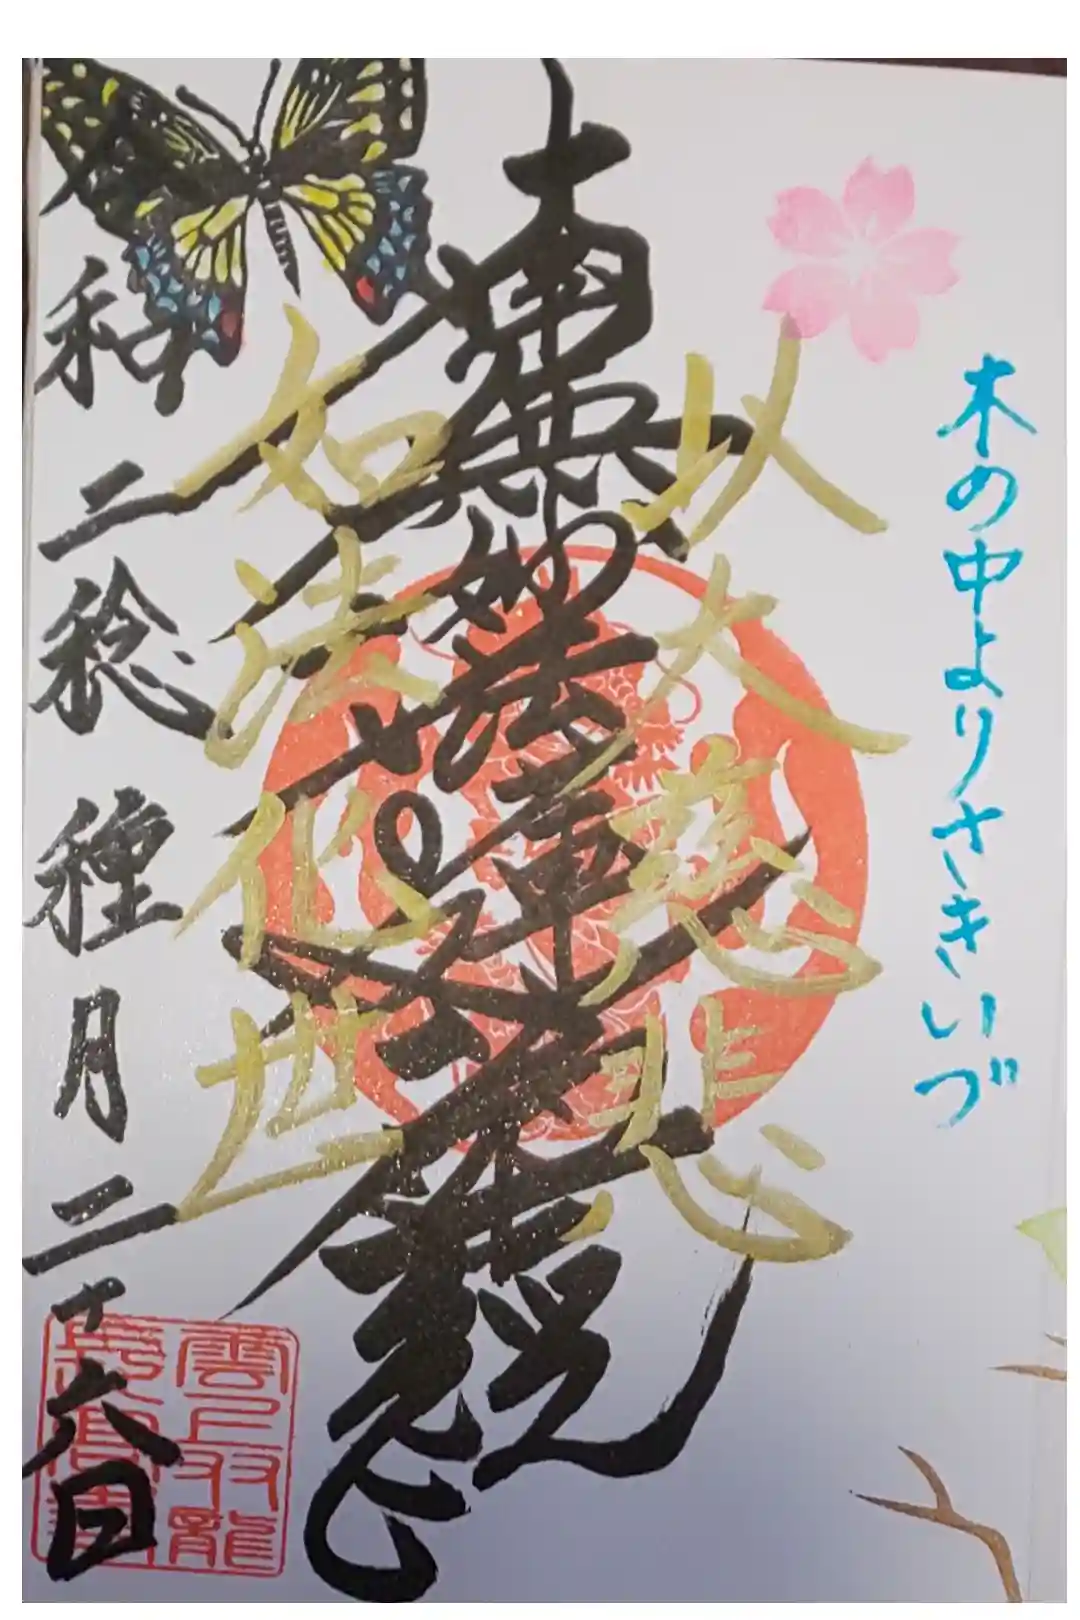 木の中よりさきいづ
以大慈悲
南無妙法蓮華経
如法化世
令和二稔種月二十六日
雲上双龍